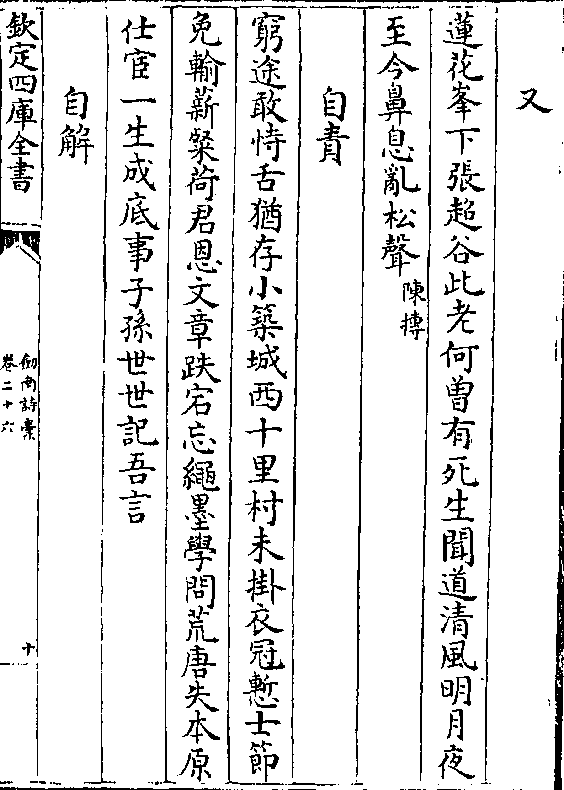 又
蓮花峯下張超谷此老何曽有死生聞道清風明月夜
至今鼻息亂松聲陳摶
自責
窮途敢恃舌猶存小築城西十里村未掛衣冠慙士節
免輸薪粲荷君恩文章跌宕忘繩墨學問荒唐失本原
仕宦一生成底事子孫世世記吾言
自解
欽定四庫全書
劍南詩稾
卷二十六
十